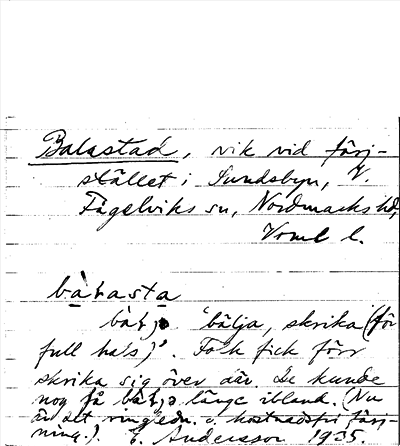 Balastad, vik vid färj-
stället i Sundsbyn, V.
Fågelviks sn, Nordmarks hd,
Vrml l.
bàɫasta
bàɫja 'bälja, skrika (för
full hals)'. Folk fick förr
skrika sig över där. De kunde
nog få bàɫja länge ibland. (Nu
är det ringledn. o. kostnadsfri färj-
ning.). E. Andersson 1935.